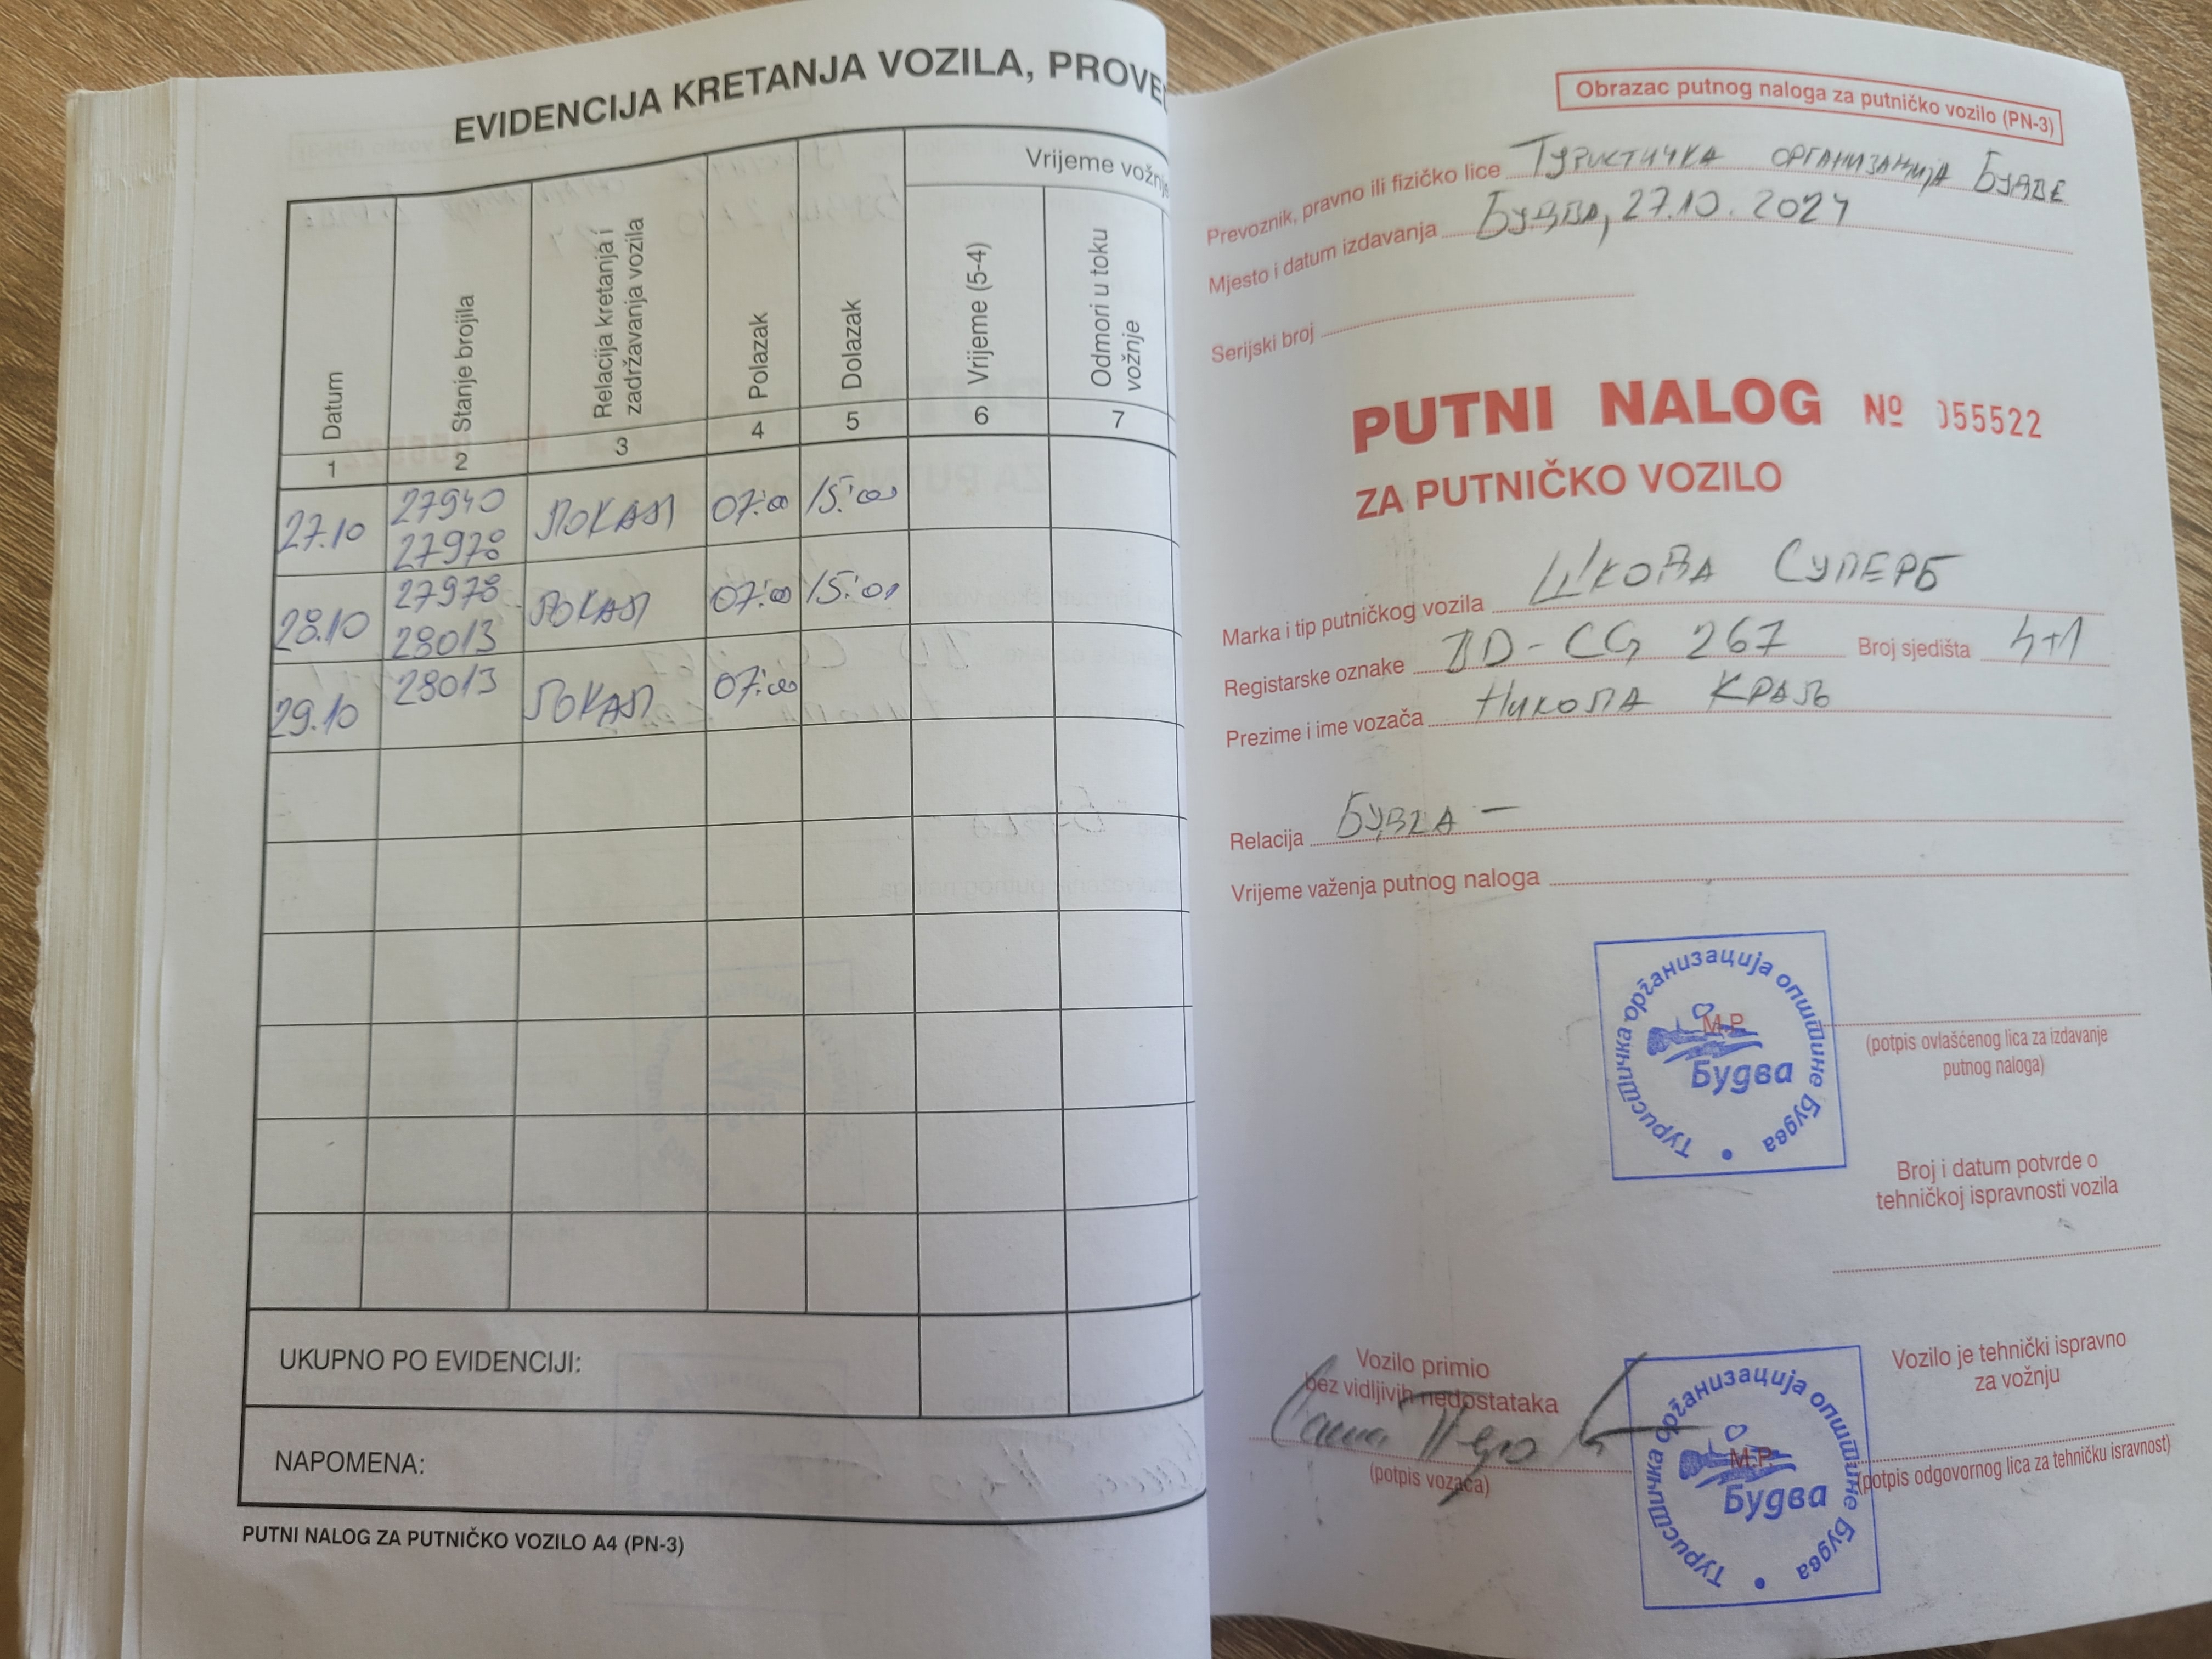 EVIDENCIJA KRETANJA VOZILA, PROVE
Vrijeme vožnje
Datum
Stanje brojila
Relacija kretanja i zadržavanja vozila
Polazak
Dolazak
Vrijeme (5-4)
Odmori u toku vožnje
1 2 3 4 5 6 7
27.10 27940 27978 ЛОКАЛ 07:00 15:00
28.10 27978 28013 ЛОКАЛ 07:00 15:00
29.10 28013 ЛОКАЛ 07:00
UKUPNO PO EVIDENCIJI:
NAPOMENA:
PUTNI NALOG ZA PUTNIČKO VOZILO A4 (PN-3)
Obrazac putnog naloga za putničko vozilo (PN-3)
Prevoznik, pravno ili fizičko lice ТУРИСТИЧКА ОРГАНИЗАЦИЈА БУДВЕ
Mjesto i datum izdavanja БУДВА, 27.10.2024
Serijski broj
PUTNI NALOG № 055522
ZA PUTNIČKO VOZILO
Marka i tip putničkog vozila ШКОДА СУПЕРБ
Registarske oznake BD-CG 267 Broj sjedišta 4+1
Prezime i ime vozača НИКОЛА КРАЉ
Relacija БУДВА –
Vrijeme važenja putnog naloga
Туристичка организација општине Будва
М.Р.
Будва
(potpis ovlašćenog lica za izdavanje
putnog naloga)
Broj i datum potvrde o
tehničkoj ispravnosti vozila
Vozilo primio
bez vidljivih nedostataka
(potpis vozača)
Туристичка организација општине Будва
М.Р.
Будва
Vozilo je tehnički ispravno
za vožnju
(potpis odgovornog lica za tehničku isravnost)